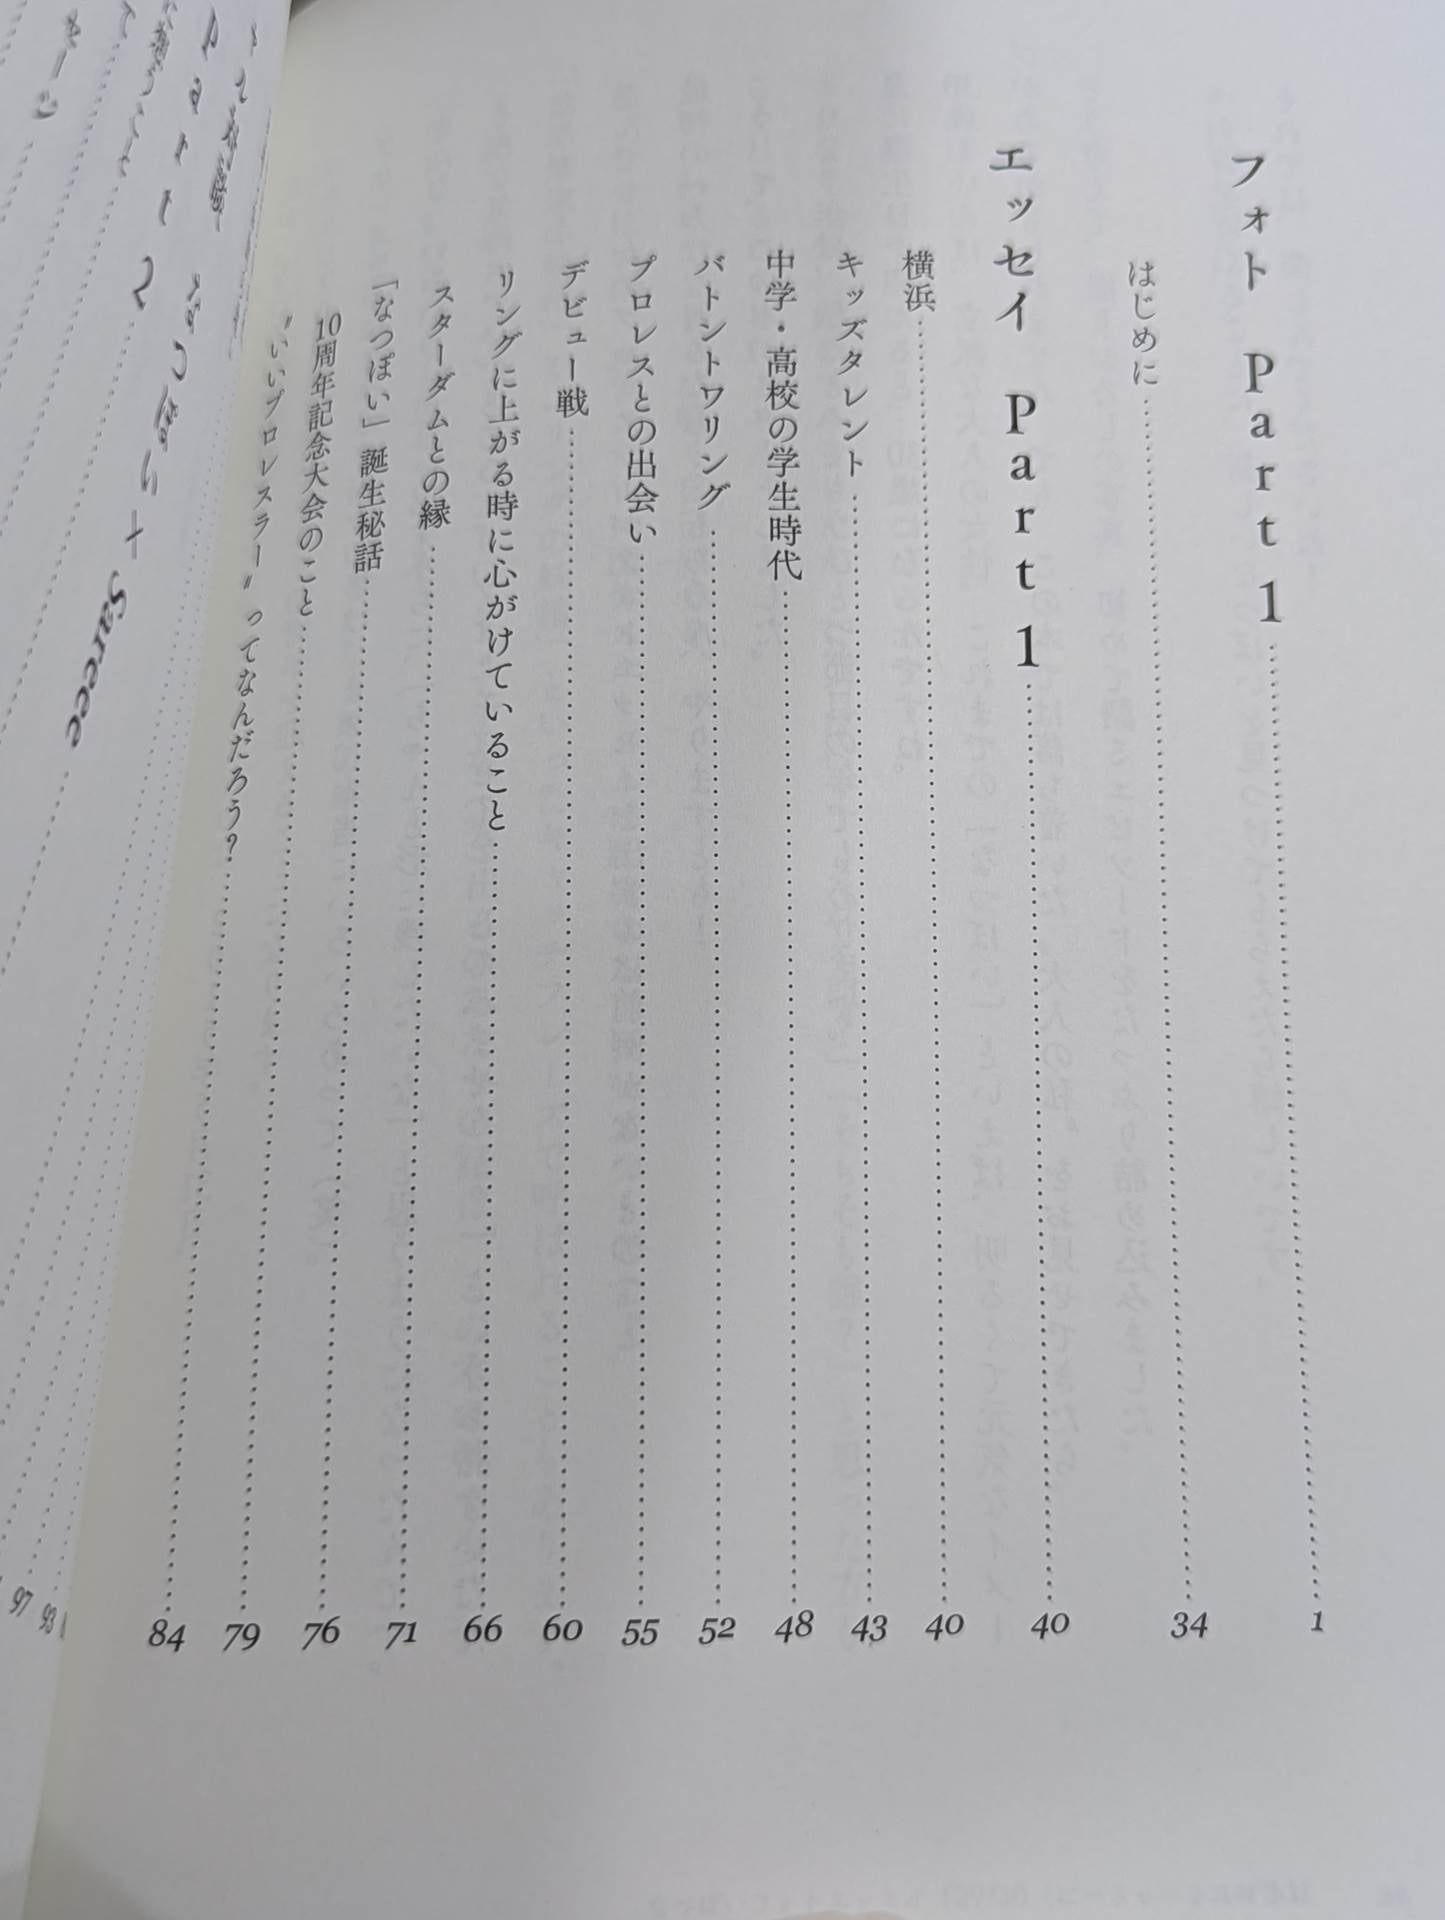 フォト Part 1 1
はじめに 34
エッセイ Part 1 40
横浜 40
キッズタレント 43
中学・高校の学生時代 48
バトントワリング 52
プロレスとの出会い 55
デビュー戦 60
リングに上がる時に心がけていること 66
スターダムとの縁 71
「なつぽい」誕生秘話 76
10周年記念大会のこと 79
〝いいプロレスラー〟ってなんだろう？ 84
Sareee
93
97